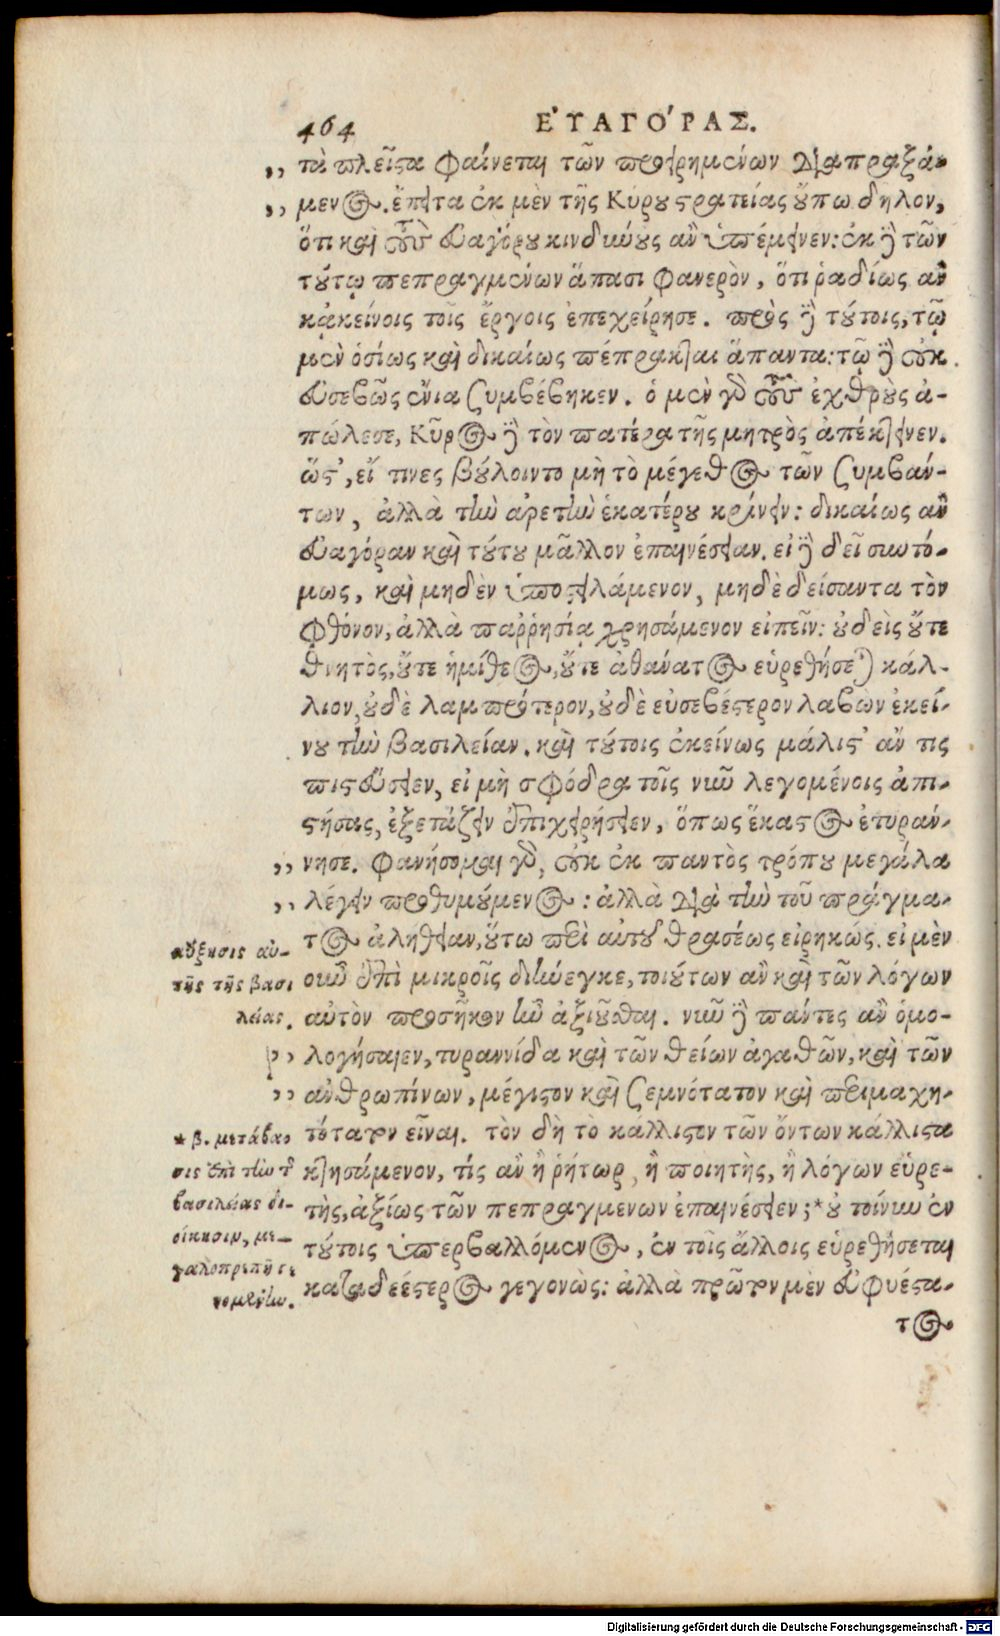 464 ΕὐΑΓΟ´ΡΑΣ.
,, τὰ πλεῖστα φαίνεται τῶν προειρημένων διαπραξά-
,, μενος. ἔπειτα ἐκ μὲν τῆς Κύρου στρατείας οὔπω δῆλον,
ὅτι καὶ τοὺς Εὐαγόρου κινδύνους ἂν ὑπέμεινεν: ἐκ δὲ τῶν
τούτῳ πεπραγμένων ἅπασι φανερὸν, ὅτι ῥᾳδίως ἂν
κᾀκείνοις τοῖς ἔργοις ἐπεχείρησε. πρὸς δὲ τούτοις, τῷ
μὲν ὁσίως καὶ δικαίως πέπρακται ἅπαντα: τῷ δὲ οὐκ
εὐσεβῶς ἔνια ζυμβέβηκεν. ὁ μὲν γὰρ τοὺς ἐχθροὺς ἀ-
πώλεσε, Κῦρος δὲ τὸν πατέρα τῆς μητρὸς ἀπέκτεινεν.
ὥστ', εἴ τινες βούλοιντο μὴ τὸ μέγεθος τῶν ζυμβάν-
των, ἀλλὰ τὴν ἀρετὴν ἑκατέρου κρίνειν: δικαίως ἂν
Εὐαγόραν καὶ τούτου μᾶλλον ἐπαινέσειαν. εἰ δὲ δεῖ συντό-
μως, καὶ μηδὲν ὑποστειλάμενον, μηδὲ δείσαντα τὸν
φθόνον, ἀλλὰ παῤῥησίᾳ χρησάμενον εἰπεῖν: οὐδεὶς οὔτε
θνητὸς, οὔτε ἡμίθεος, οὔτε ἀθάνατος εὑρεθήσεται κάλ-
λιον, οὐδὲ λαμπρότερον, οὐδὲ εὐσεβέστερον λαβὼν ἐκεί-
νου τὴν βασιλείαν. καὶ τούτοις ἐκείνως μάλιστ' ἄν τις
πιστεύσειεν, εἰ μὴ σφόδρα τοῖς νῦν λεγομένοις ἀπι-
στήσας, ἐξετάζειν ἐπιχειρήσειεν, ὅπως ἕκαστος ἐτυράν-
,, νησε. φανήσομαι γὰρ, οὐκ ἐκ παντὸς τρόπου μεγάλα
,, λέγειν προθυμούμενος: ἀλλὰ διὰ τὴν τοῦ πράγμα-
τος ἀλήθειαν, οὕτω περὶ αὐτοῦ θρασέως εἰρηκώς. εἰ μὲν
αὔξησις αὐ-
τῆς τῆς βασι
λείας.
οὖν ἐπὶ μικροῖς διήνεγκε, τοιούτων ἂν καὶ τῶν λόγων
αὐτὸν προσῆκον ἦν ἀξιοῦσθαι. νῦν δὲ πάντες ἂν ὁμο-
,, λογήσαιεν, τυραννίδα καὶ τῶν θείων ἀγαθῶν, καὶ τῶν
,, ἀνθρωπίνων, μέγιστον καὶ ζεμνότατον καὶ περιμαχη-
τότατον εἶναι. τὸν δὴ τὸ κάλλιστον τῶν ὄντων κάλλιστα
κτησάμενον, τίς ἂν ἢ ῥήτωρ, ἢ ποιητὴς, ἢ λόγων εὑρε-
τὴς, ἀξίως τῶν πεπραγμενων ἐπαινέσειεν; * οὐ τοίνυν ἐν
τούτοις ὑπερβαλλόμενος, ἐν τοῖς ἄλλοις εὑρεθήσεται
καταδεέστερος γεγονὼς: ἀλλὰ πρῶτον μὲν εὐφυέστα-
* β. μετάβα
σις ἐπὶ τὴν τῆς
βασιλείας δι-
οίκησιν, με-
γαλοπρεπῆ γε
νομένην.
τος
Digitalisierung gefördert durch die Deutsche Forschungsgemeinschaft - DFG